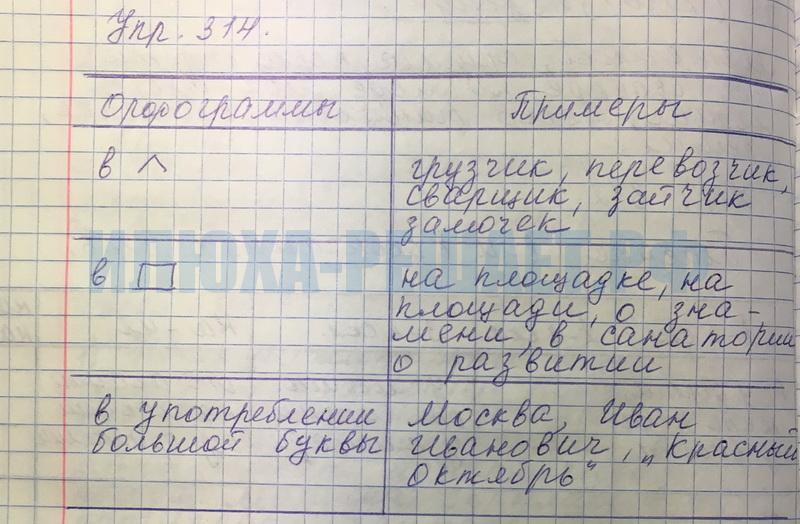 Упр. 314.
Орфограммы Примеры
в ^ грузчик, перевозчик,
сварщик, зайчик
замочек
ИЛЮХА-РЕШАЕТ.РФ
в □ на площадке, на
площади, о зна-
мени, в санатории
о развитии
в употреблении Москва, Иван
большой буквы Иванович, „Красный
октябрь“